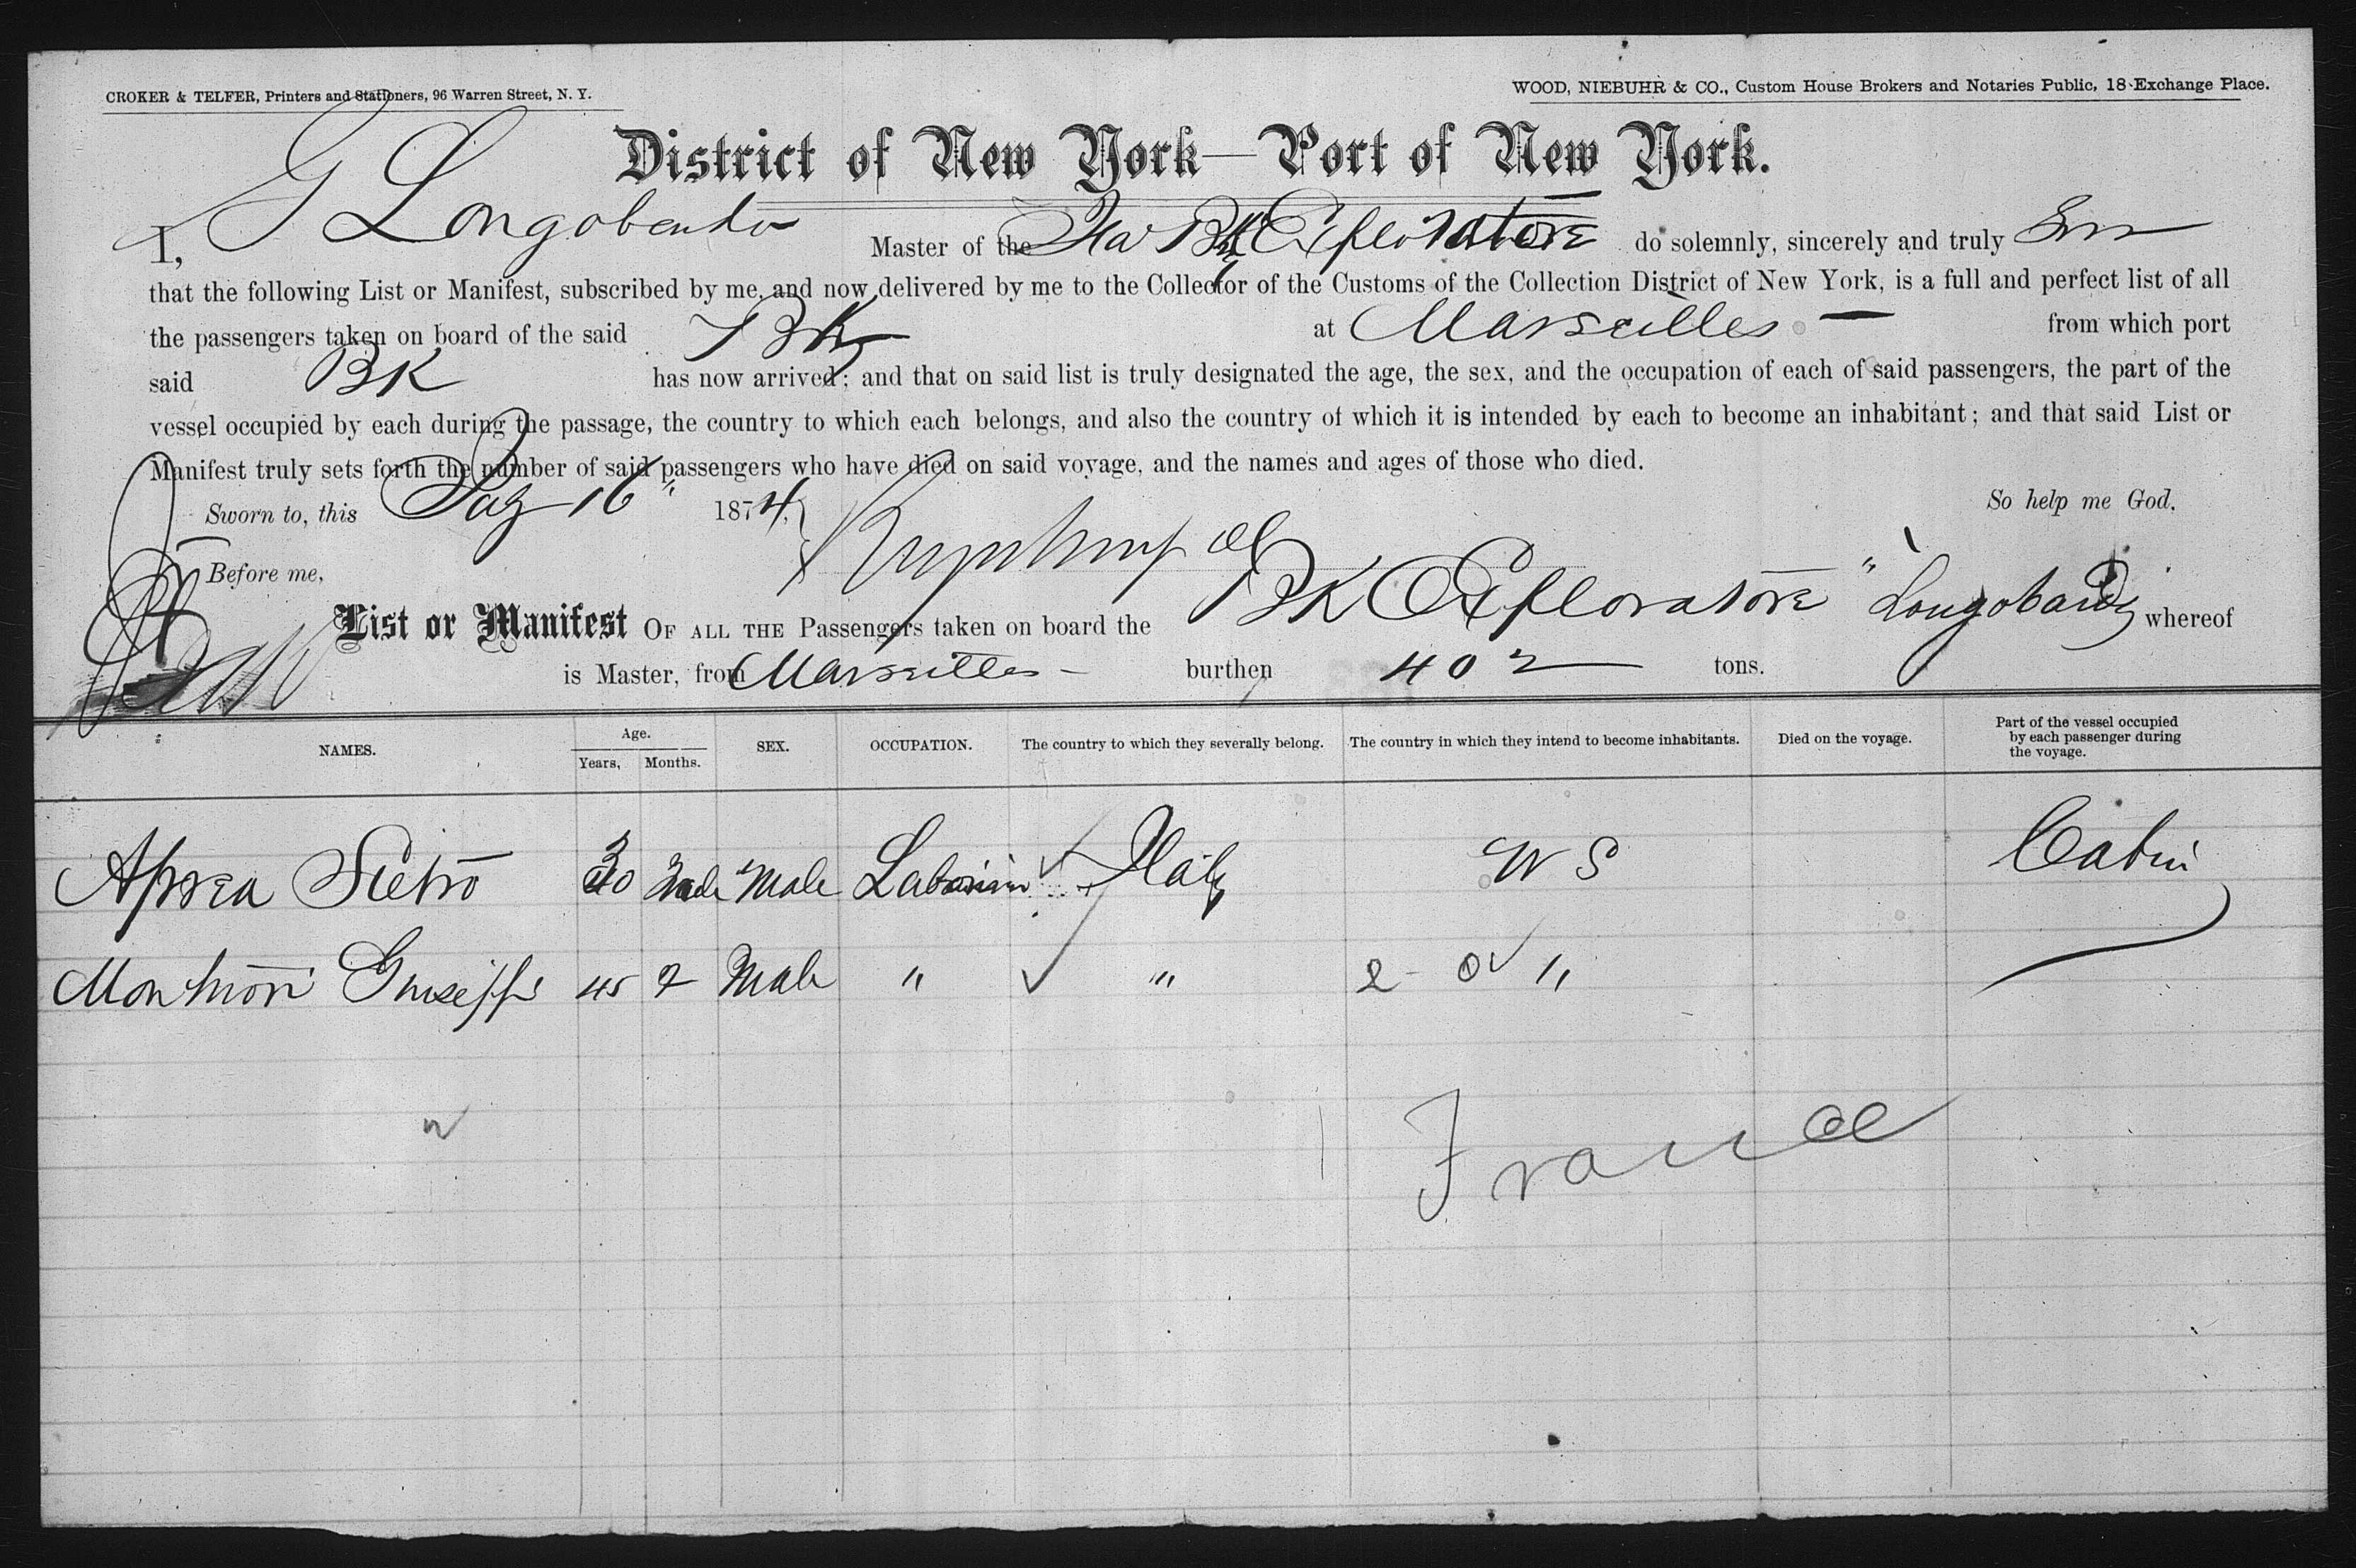 CROKER & TELFER, Printers and Stationers, 96 Warren Street, N. Y.
WOOD, NIEBUHR & CO., Custom House Brokers and Notaries Public, 18 Exchange Place.
District of New York—Port of New York.
I, G Longobardo Master of the Bk Esploratore do solemnly, sincerely and truly
that the following List or Manifest, subscribed by me, and now delivered by me to the Collector of the Customs of the Collection District of New York, is a full and perfect list of all
the passengers taken on board of the said Bk at Marseilles — from which port
said BK has now arrived; and that on said list is truly designated the age, the sex, and the occupation of each of said passengers, the part of the
vessel occupied by each during the passage, the country to which each belongs, and also the country of which it is intended by each to become an inhabitant; and that said List or
Manifest truly sets forth the number of said passengers who have died on said voyage, and the names and ages of those who died.
Sworn to, this 16" 1874, So help me God.
Before me,
List or Manifest OF ALL THE Passengers taken on board the BK Esploratore "Longobardo whereof
is Master, from Marseilles — burthen 402 tons.
NAMES. Age. Years, Months. SEX. OCCUPATION. The country to which they severally belong. The country in which they intend to become inhabitants. Died on the voyage. Part of the vessel occupied by each passenger during the voyage.
Aprea Pietro 30 Male Italy Cabin
Giuseppe 45 2 Male " " 2 - 0 "
France